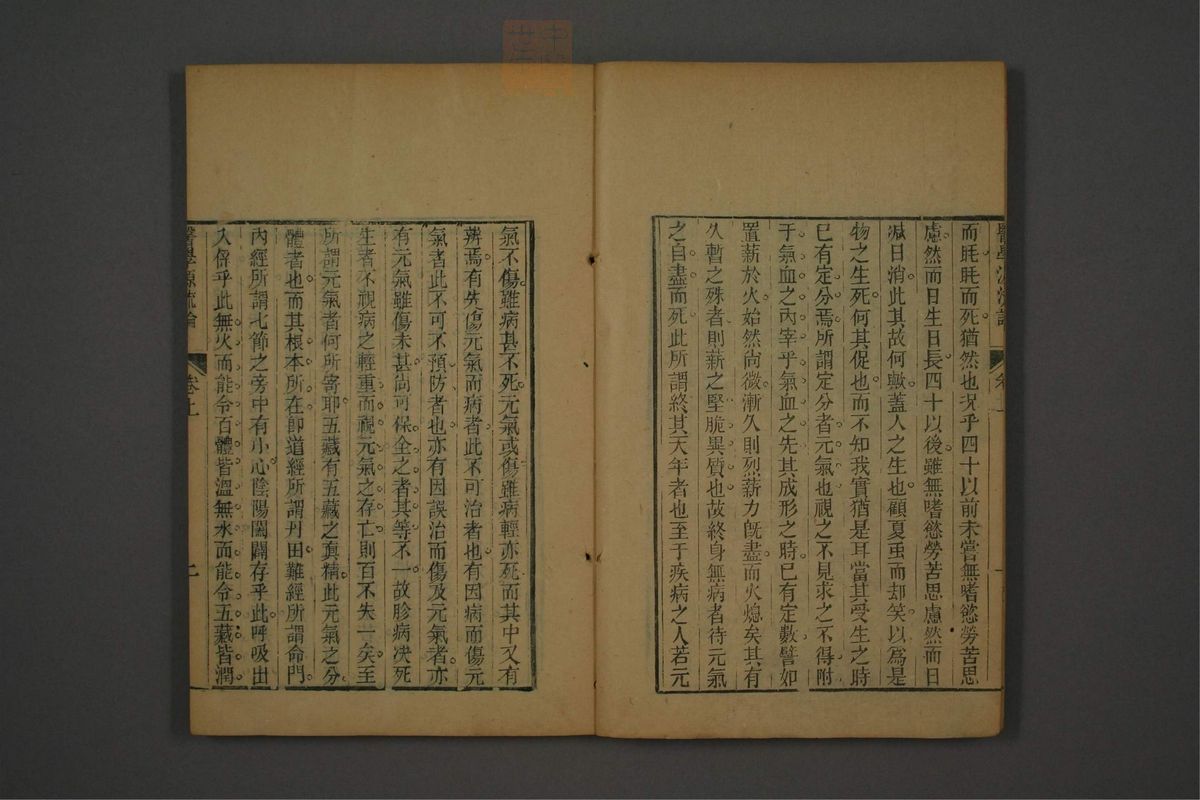 醫學源流論
卷上
一
而眊眊而死猶然也况乎四十以前未嘗無嗜慾勞苦思
慮然而日生日長四十以後雖無嗜慾勞苦思慮然而日
减日消此其故何歟蓋人之生也顧夏虫而却笑以爲是
物之生死何其促也而不知我實猶是耳當其受生之時
已有定分焉所謂定分者元氣也視之不見求之不得附
于氣血之内宰乎氣血之先其成形之時已有定數譬如
置薪於火始然尚微漸久則烈薪力旣盡而火熄矣其有
久暫之殊者則薪之堅脆異質也故終身無病者待元氣
之自盡而死此所謂終其天年者也至于疾病之人若元
氣不傷雖病甚不死元氣或傷雖病輕亦死而其中又有
辨焉有先傷元氣而病者此不可治者也有因病而傷元
氣者此不可不預防者也亦有因誤治而傷及元氣者亦
有元氣雖傷未甚尚可保全之者其等不一故胗病决死
生者不視病之輕重而視元氣之存亡則百不失一矣至
所謂元氣者何所寄耶五藏有五藏之真精此元氣之分
體者也而其根本所在卽道經所謂丹田難經所謂命門
内經所謂七節之旁中有小心陰陽闔闢存乎此呼吸出
入係乎此無火而能令百體皆溫無水而能令五藏皆潤
醫學源流論
卷上
二